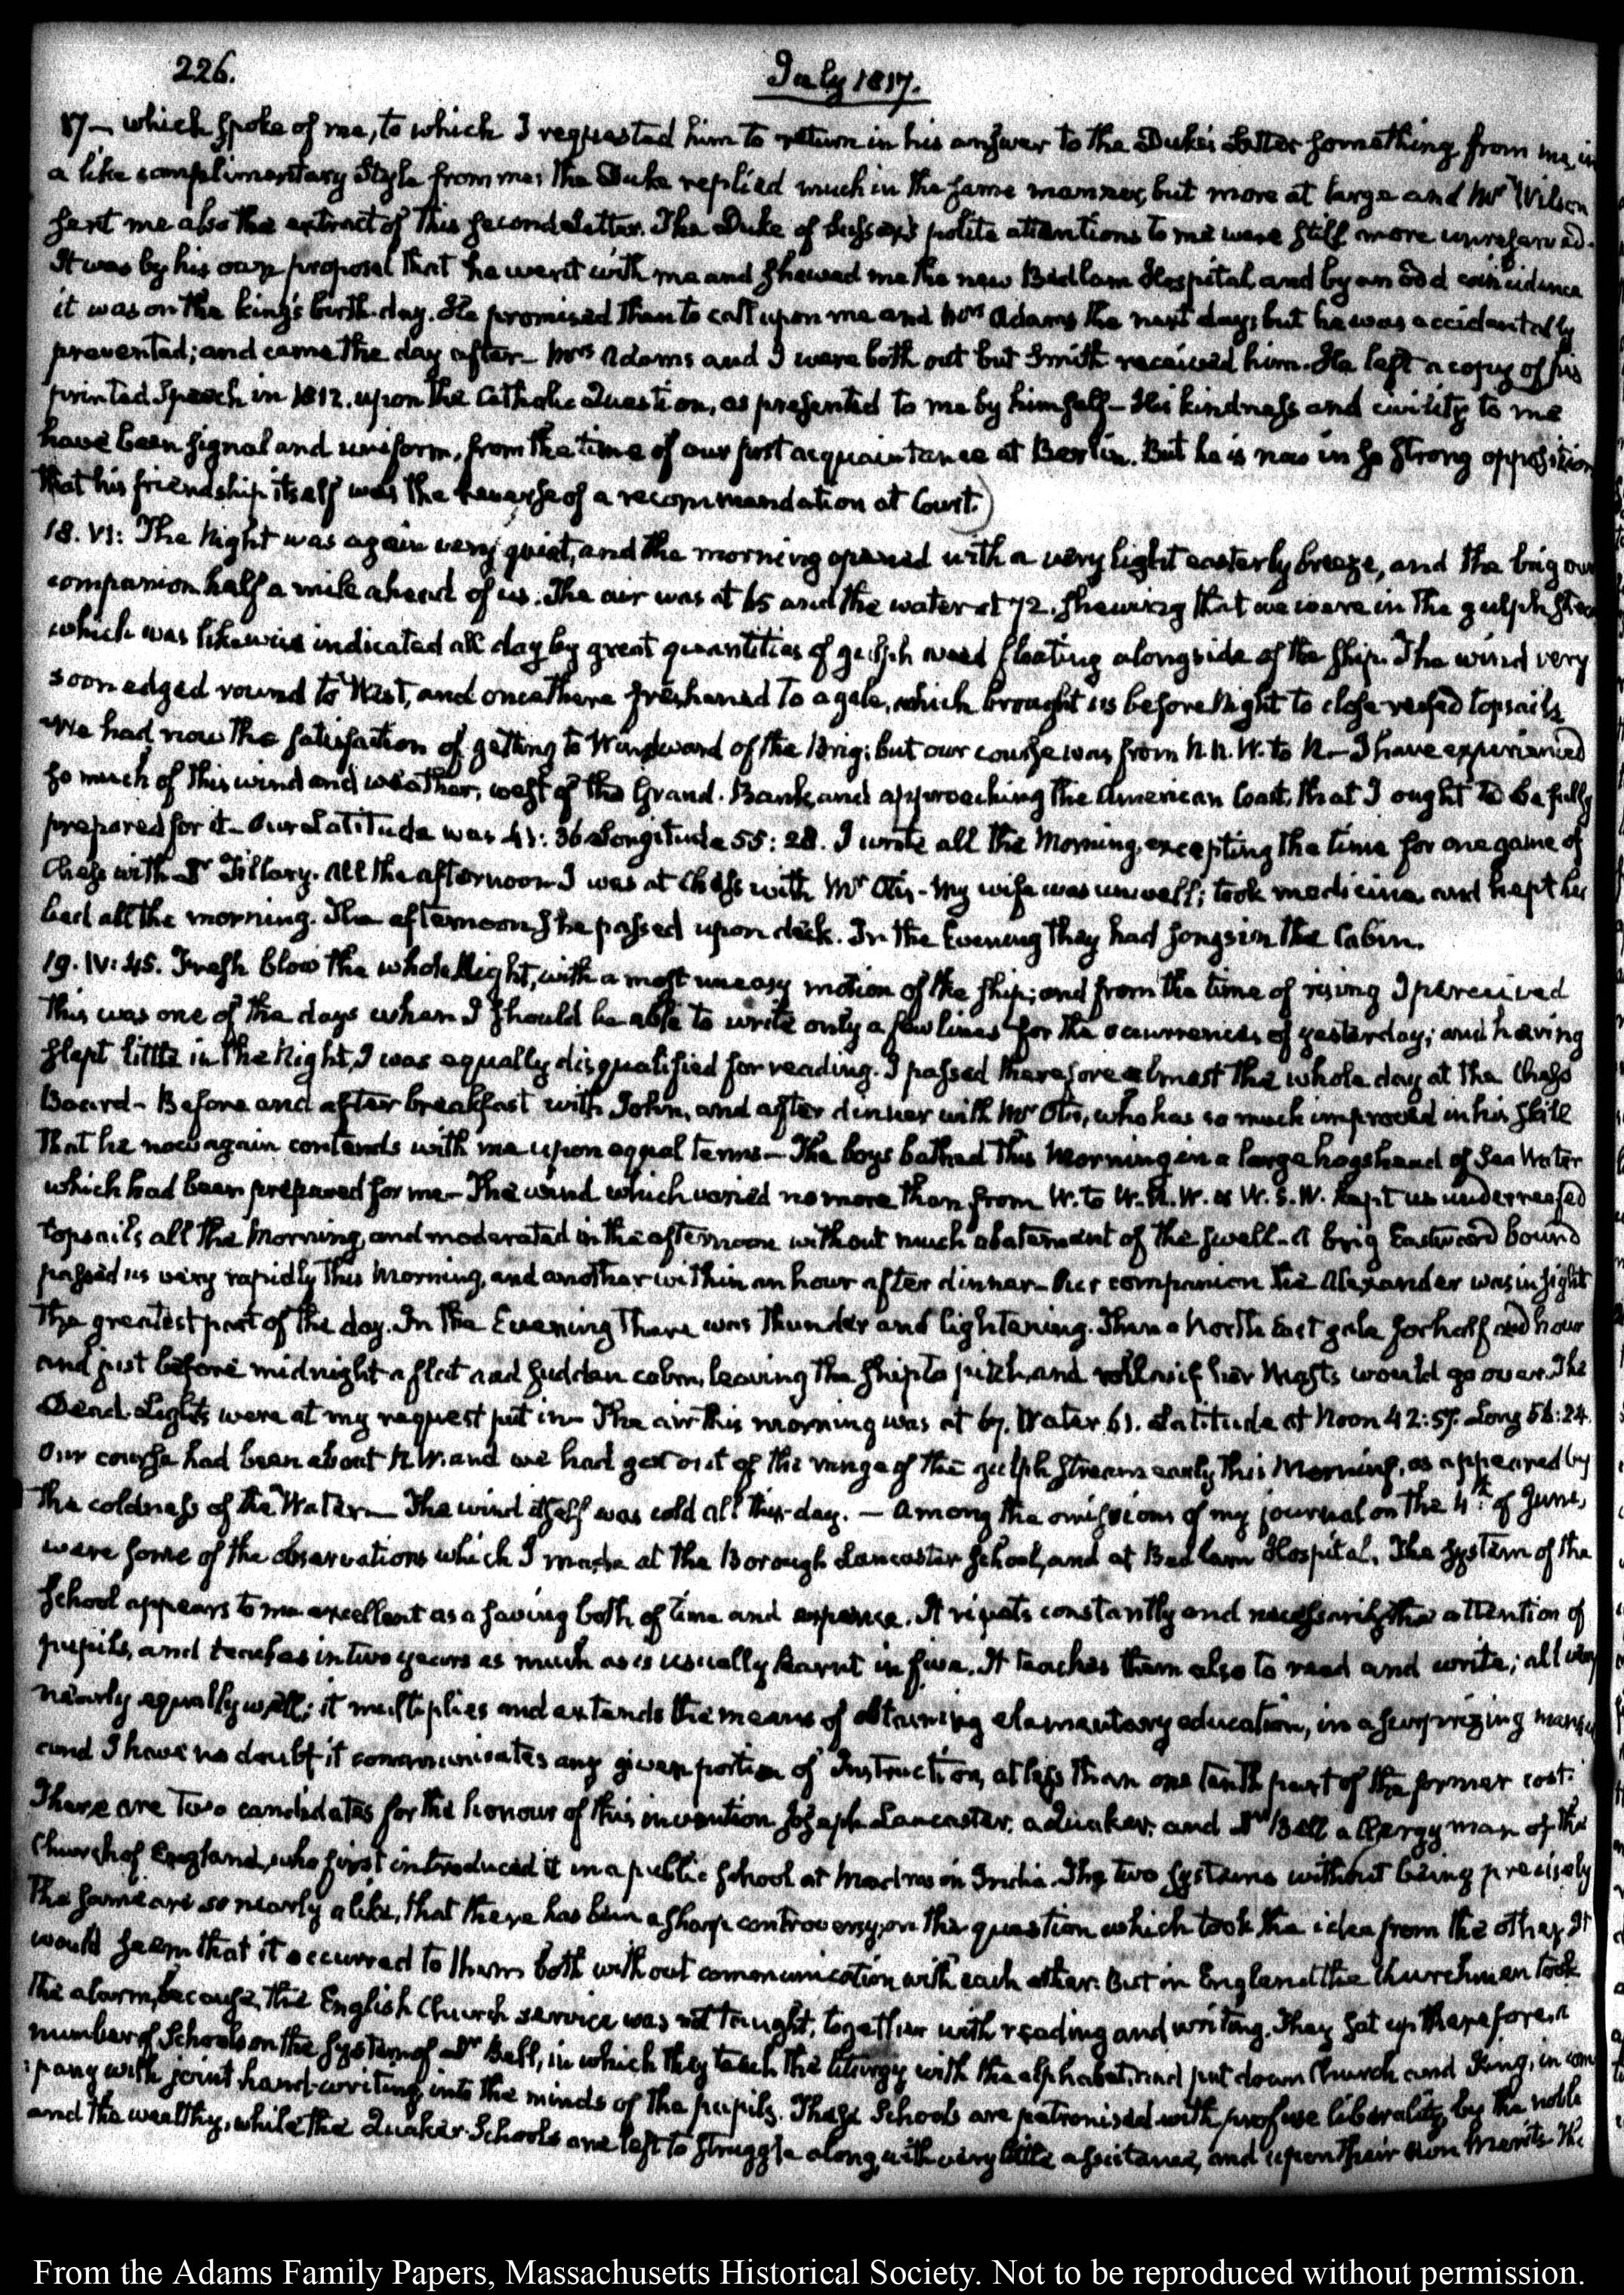 226.
July 1817.
17— which spoke of me, to which I requested him to return in his answer to the Duke's Letter something from me, in
a like complimentary Style from me: the Duke replied much in the same manner, but more at large and Mr Wilson
sent me also the extract of this second Letter. The Duke of Sussex's polite attentions to me were still more unreserved.
It was by his own proposal that he went with me and shewed me the new Bedlam Hospital, and by an odd coincidence
it was on the king's birth-day. He promised then to call upon me and Mrs Adams the next day; but he was accidentally
prevented; and came the day after— Mrs Adams and I were both out but Smith received him. He left a copy of his
printed Speech in 1812. upon the Catholic Question, as presented to me by himself— His kindness and civility to me
have been signal and uniform, from the time of our first acquaintance at Berlin. But he is now in so strong opposition
that his friendship itself was the reverse of a recommendation at Court.)
18. VI: The Night was again very quiet, and the morning opened with a very light easterly breeze, and the brig our
companion half a mile ahead of us. The air was at 65 and the water at 72. shewing that we were in the gulph stream
which was likewise indicated all day by great quantities of gulph weed floating alongside of the ship. The wind very
soon edged round to West, and once there freshened to a gale, which brought us before Night to close-reefed topsails.
We had now the satisfaction of getting to Windward of the Brig; but our course was from N.N.W. to N— I have experienced
so much of this wind and weather, west of the Grand-Bank, and approaching the American Coast, that I ought to be fully
prepared for it— Our Latitude was 41: 36 Longitude 55: 28. I wrote all the Morning, excepting the time for one game of
Chess with Dr Tillary. All the afternoon I was at Chess with Mr Otis— My wife was unwell; took medicine, and kept her
bed all the morning. The afternoon she passed upon deck. In the Evening they had songs in the Cabin.
19. IV: 45. Fresh blow the whole Night, with a most uneasy motion of the ship; and from the time of rising I perceived
this was one of the days when I should be able to write only a few lines for the occurrences of yesterday; and having
slept little in the Night, I was equally disqualified for reading. I passed therefore almost the whole day at the Chess
Board— Before and after breakfast with John, and after dinner with Mr Otis, who has so much improved in his skill
that he now again contends with me upon equal terms— The boys bathed this Morning in a large hogshead of Sea Water
which had been prepared for me— The wind which varied no more than from W. to W.N.W. & W.S.W. kept us under reefed
topsails all the Morning, and moderated in the afternoon without much abatement of the swell— A brig Eastward bound
passed us very rapidly this Morning, and another within an hour after dinner— Our companion the Alexander was in sight
the greatest part of the day. In the Evening there was thunder and lightening. Then a North East gale for half an hour
and just before midnight a flat and sudden calm, leaving the ship to pitch, and roll as if her Masts would go over. The
Dead-Lights were at my request put in— The air this morning was at 67. Water 61. Latitude at Noon 42: 57. Long 56: 24.
Our course had been about N.W. and we had got out of the range of the gulph stream early this Morning, as appeared by
the coldness of the Water— The wind itself was cold all this day.— Among the omissions of my journal on the 4th of June,
were some of the observations which I made at the Borough Lancaster School, and at Bedlam Hospital. The system of the
School appears to me excellent as a saving both of time and expence. It rivets constantly and necessarily the attention of
pupils, and teaches in two years as much as is usually learnt in five. It teaches them also to read and write; all very
nearly equally well; it multiplies and extends the means of obtaining elementary education, in a surprizing manner
and I have no doubt it communicates any given portion of Instruction, at less than one tenth part of the former cost.
There are two candidates for the honour of this invention Joseph Lancaster, a Quaker, and Dr Bell a Clergyman of the
Church of England, who first introduced it in a public school at Madras in India. The two systems without being precisely
the same are so nearly alike, that there has been a sharp controversy on the question which took the idea from the other. It
would seem that it occurred to them both without communication with each other: But in England the Churchmen took
the alarm, because the English Church service was not taught, together with reading and writing. They set up therefore, a
number of Schools on the system of Dr Bell, in which they teach the liturgy with the alphabet, and put down Church and King, in com
:pany with joint hand-writing, into the minds of the pupils. These Schools are patronised with profuse liberality by the noble
and the wealthy, while the Quaker Schools are left to struggle along with very little assistance, and upon their own Merits. The
From the Adams Family Papers, Massachusetts Historical Society. Not to be reproduced without permission.